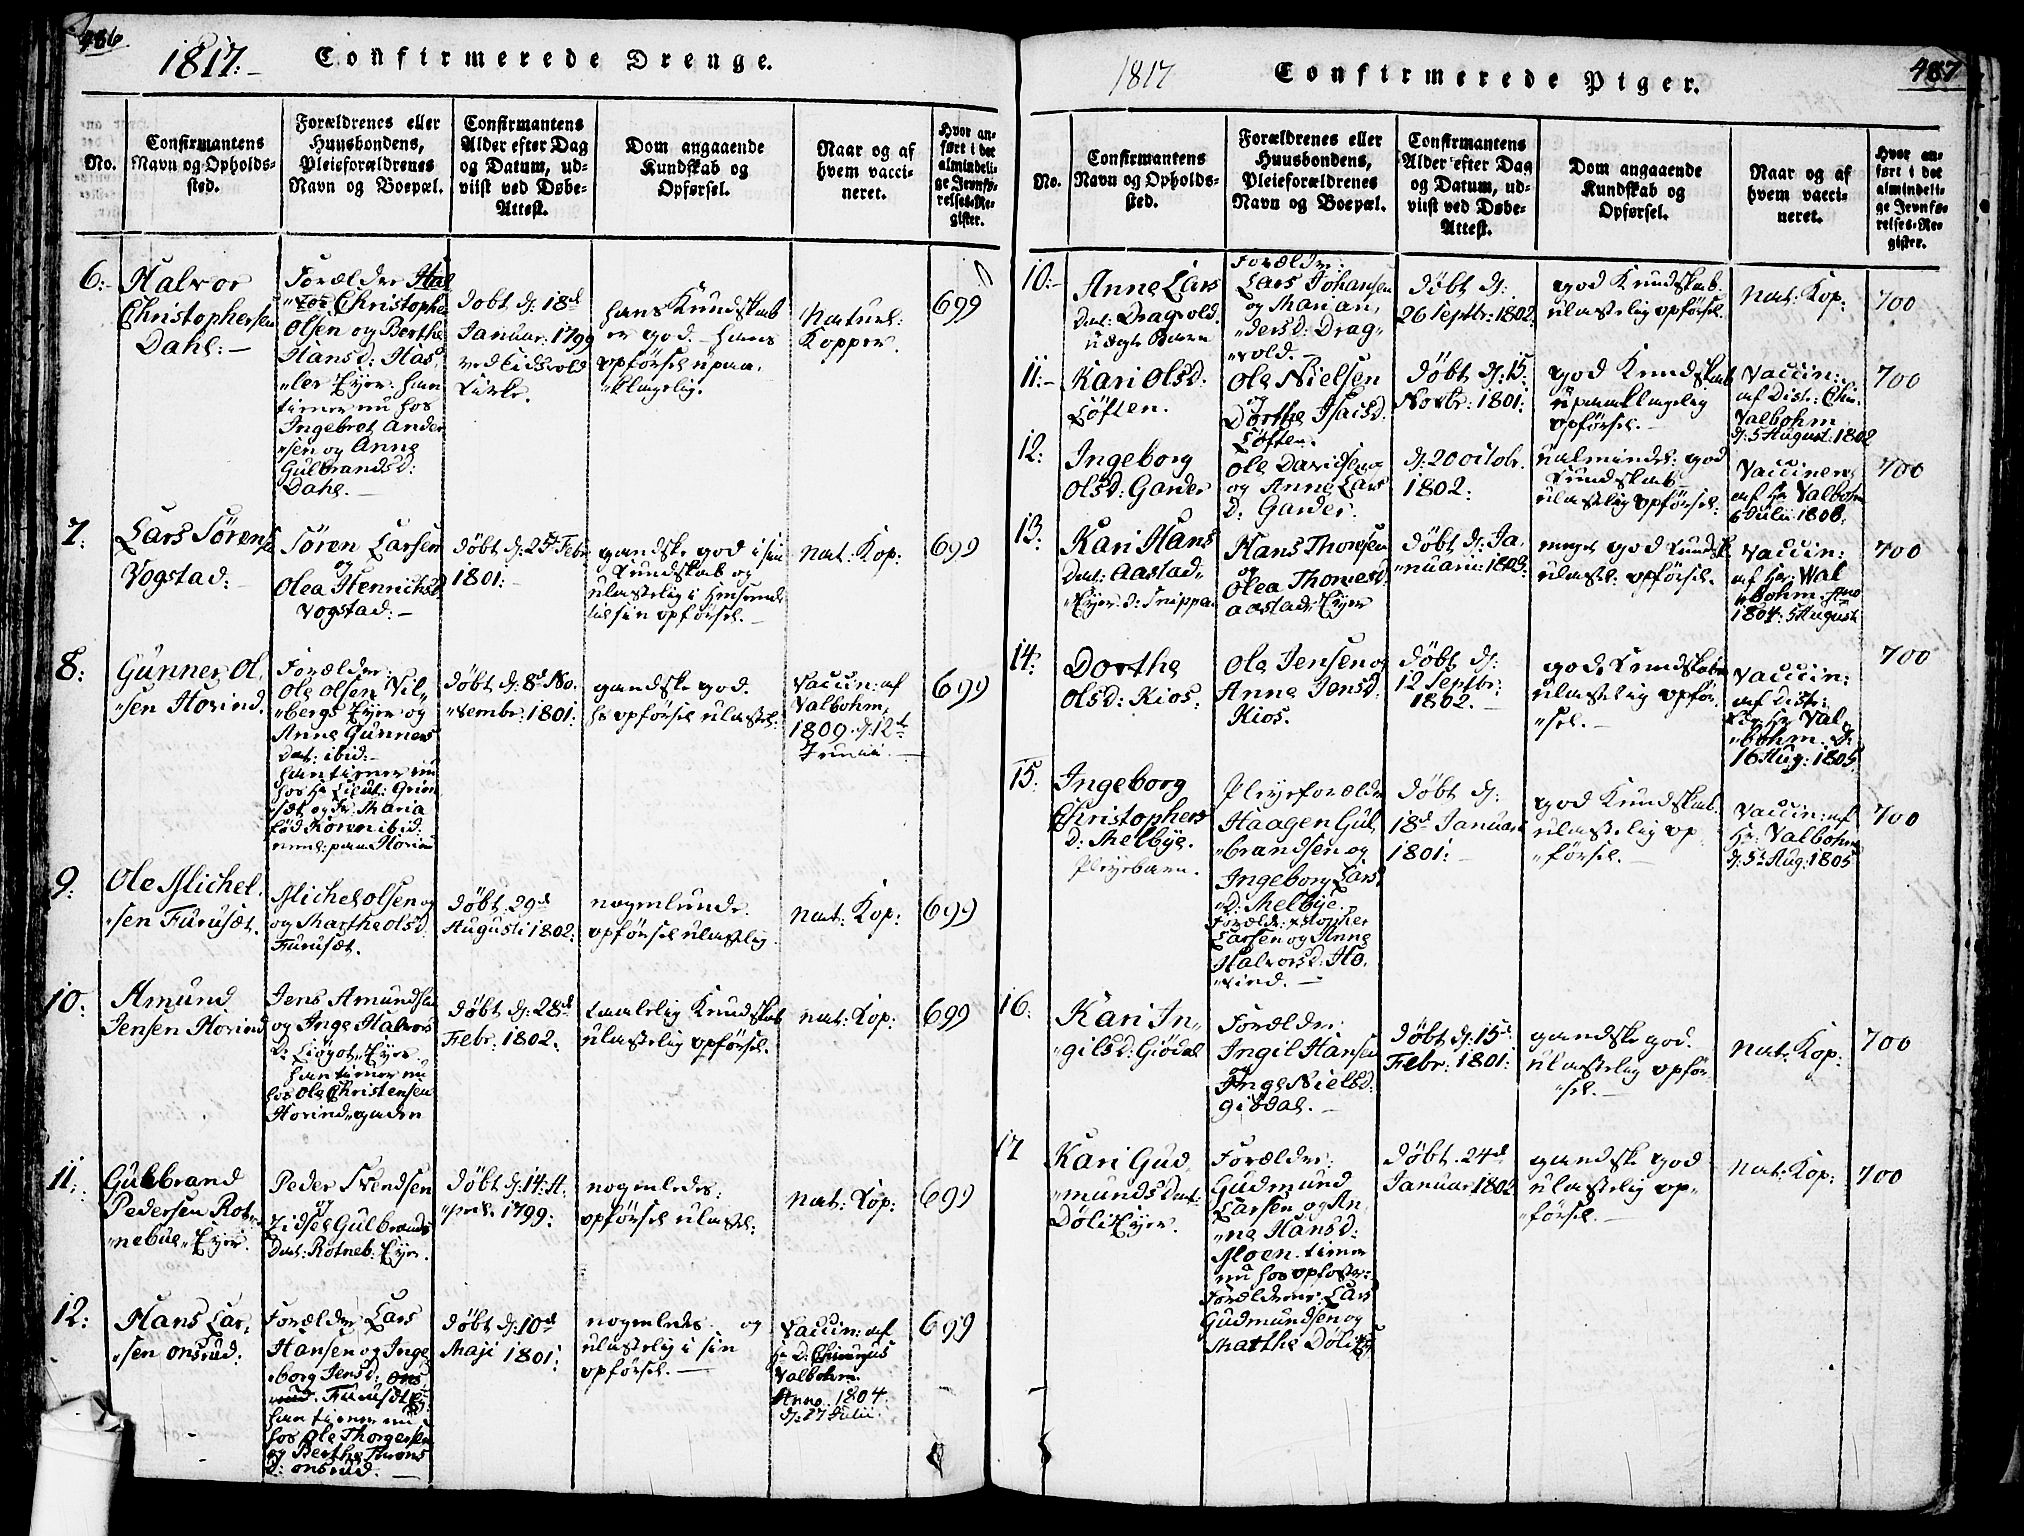 486
1817.
Confirmerede Drenge.
No.
Confirmantens
Navn og Opholds-
sted.
Forældrenes eller
Huusbondens,
Pleieforældrenes
Navn og Boepæl.
Confirmantens
Alder efter Dag
og Datum, ud-
viist ved Døbe-
Attest.
Dom angaaende
Kundskab og
Opførsel.
Naar og af
hvem vacci-
neret.
Hvor an-
ført i det
almindeli-
ge Jevnfø-
relses-Re-
gister.
6.
Halvor
Christophersen
Dahl.
Forælder Hal
vor Christopher
Olsen og Berthe
Hansd: Has
ler Ejer. han
tiener nu hos
Ingebret Ander
sen og Anne
Gulbrandsd:
Dahl.
Døbt d: 18d
Januar: 1799
ved Eidsvold
Kirke.
hans Kundskab
er god. hans
opførsel upaa
klagelig.
Naturl:
Kopper.
699
7.
Lars Sørens
Vogstad.
Søren Larsen
og
Olea Henrichsd
Vogstad.
Døbt d: 25d Febr
1801.
gandske god i sin
Kundskab og
ulastelig i Henseende
til sin opførsel.
nat: Kop:
699
8:
Gunner Ol,
sen Hovind.
Forælder:
Ole Olsen Vil,
bergs Ejer og
Anne Gunners
Dat: ibid:
han tiener nu
hos Hr Lieut: Grim
sæt og Fr. Maria
fød Koren ibid
neml: paa Hovin
Døbt d: 8d No.
vembr: 1801.
gandske god.
hs opførsel ulastel:
Vaccin: af
Valbohm,
1809. d: 12t
Junii.
699
9.
Ole Michel
sen Furusæt.
Michel Olsen og
og Marthe Olsd:
Furusæt.
Døbt 29d
Augusti 1802.
nogenlunde.
opførsel ulastelig.
nat: Kop:
699
10.
Amund
Jensen Hovind
Jens Amundsen
og Inge Halvors
D: Liøgot Ejer.
han tiener nu
hos Ole Christensen
Hovind gaden
Døbt d: 28d
Febr: 1802.
taalelig Kundskab
ulastelig opførsel.
nat: Kop:
699
11.
Gulbrand
Pedersen Rot
nebüe Ejer.
Peder Svendsen
og
Zidsel Gulbrands
Dat: Rotneb: Ejer.
Døbt d: 14. A.
pril. 1799.
nogenledes:
opførsel ulastel:
nat: Kop:
699
12:
Hans Lar,
sen Onsrud.
Forælder Lars
Hansen og Inge
borg Jensd: Ons
rud. Furusæt E
han tiener nu
hos Ole Thorgersen
og Berthe Throns
D: Onsrud.
Døbt d: 10d
Maji 1801.
nogenledes og
ulastelig i sin
opførsel.
Vaccin: af
Hr D: Chirurgus
Valbohm
Anno. 1804.
d: 17 Julii.
699
1817
Confirmerede Piger.
487
No.
Confirmantens
Navn og Opholds-
sted.
Forældrenes eller
Huusbondens,
Pleieforældrenes
Navn og Boepæl.
Confirmantens
Alder efter Dag
og Datum, ud-
viist ved Døbe-
Attest.
Dom angaaende
Kundskab og
Opførsel.
Naar og af
hvem vacci-
neret.
Hvor an-
ført i det
almindeli-
ge Jevnfø-
relses-Re-
gister.
10.
Anne Lars
Dat: Dragvold.
uægte Barn
Forælder:
Lars Johansen
og Marian,
dersd: Drag
vold.
Døbt d:
26 Septbr: 1802.
god Kundskab.
ulastelig opførsel.
Nat: Kop:
700
11.
Kari Olsd:
Løften.
Ole Nielsen
og
Dorthe Isaisd:
Løften.
Døbt d: 15.
Novbr: 1801.
god Kundskab
upaaklagelig
opførsel.
Vaccin:
af Distr: Chir.
Valbohm
d: 5 August: 1802
700
12:
Ingeborg
Olsd: Garder
Ole Davidsen
og Anne Lars
D: Garder.
d: 20 Octobr.
1802.
ualmindel: god
Kundskab
ulastelig opførsel:
Vaccineret
af Hr Valbohm
6 Julii 1808.
700
13.
Kari Hans
Dat: Aastad,
Ejer d: Snippa
Hans Thoresen
og
Olea Thoresd.
Aastad Ejer
Døbt d: Ja,
nuarii 1803.
meget god Kundsk
ulastel: opførsel.
Vaccin:
af Hr: Wal
bohm. Ano
1804. 5 August
700
14.
Dorthe
Olsd: Kios.
Ole Jensen og
Anne Jensd:
Kios.
Døbt d:
12 Septbr:
1802.
god Kundskab
ulastelig opfør
sel.
Vaccin:
af Distr:
Hr Val,
bohm. D:
16 Aug: 1805.
700
15.
Ingeborg
Christophers
D: Melbye.
Pleyebarn.
Pleyeforælder
Haagen Gul
brandsen og
Ingeborg Lars
D: Melbye.
Forælder: xstopher
Larsen og Anne
Halvorsd: Ho
vind.
Døbt d:
18d Januar
1801.
god Kundskab
ulastelig op
førsel.
Vaccin: af
Hr. Valbohm
d: 5t Aug: 1805
700
16.
Kari In,
gilsd: Giødal
Forælder:
Ingil Hansen
og
Inge Nielsd:
Giødal.
Døbt d: 15d
Febr: 1801:
gandske god.
ulastelig opfør
sel.
Nat: Kop:
700
17
Kari Gud,
munds Dat:
Døli Ejer.
Forælder:
Gudmund
Larsen og An,
ne Hansd:
Moen. tiener
nu hos opfoster
Forælderne Lars
Gudmundsen og
Marthe Døli E
Døbt. 24d
Januar 1802
gandske god
ulastelig op
førsel.
Nat: Kop:
700